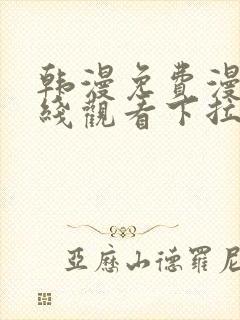 韩漫免費漫
綫觀看下拉
亞歷山德羅尼